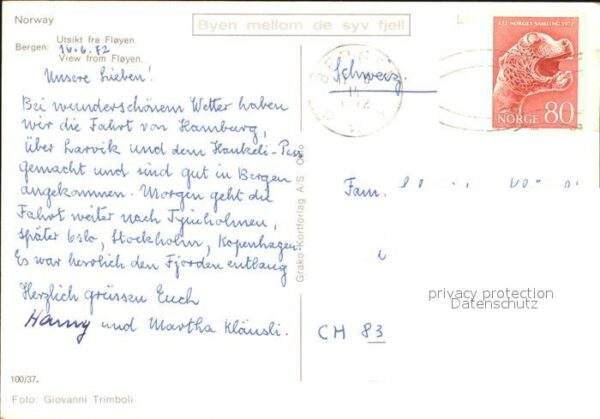 Norway
Byen mellom de syv fjell
Utsikt fra Fløyen.
Bergen:
16.6.72
View from Fløyen.
Unsere Lieben!
Bei wunderschönem Wetter haben
wir die Fahrt von Hamburg,
über Larvik und dem Haukeli-Pass
gemacht und sind gut in Bergen
angekommen. Morgen geht die
Fahrt weiter nach Tyinholmen,
später Oslo, Stockholm, Kopenhagen.
Es war herrlich den Fjorden entlang
Herzlich grüssen Euch
Hanny und Martha Kläusli.
100/37.
Foto: Giovanni Trimboli
Grako Kortforlag A/S Oslo
BERGEN
Schweiz
872 NORGES SAMLING 1972
NORGE 80
Fam.
CH 83
privacy protection
Datenschutz